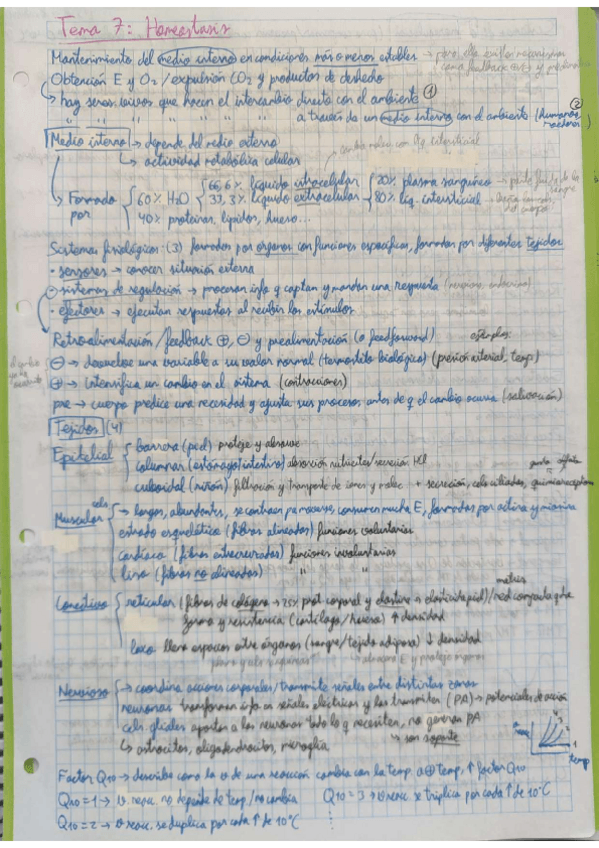 Tema 7: Homeostasis
Mantenimiento del medio interno en condiciones más o menos estables → para ello existen mecanismos como feedback
Obtención E y O₂ / expulsión CO₂ y productos de desecho
↳ hay seres vivos que hacen el intercambio directo con el ambiente ①
" " " " " " a través de un medio interno con el ambiente (humanos ②
Medio interno → depende del medio externo
↳ actividad metabólica celular
→ Formado por { 60% H₂O { 66,6% líquido intracelular
33,3% líquido extracelular { 20% plasma sanguíneo → parte fluida de la sangre
80% líq. intersticial
40% proteínas, lípidos, hueso...
Sistemas fisiológicos: (3) formados por órganos con funciones específicas, formados por diferentes tejidos
• sensores → conocer situación externa
• sistemas de regulación → procesan info y captan y mandan una respuesta (nervioso, endocrino)
• efectores → ejecutan respuestas al recibir los estímulos
Retroalimentación/feedback ⊕, ⊖ y prealimentación (o feedforward) ejemplos:
⊖ → devuelve una variable a su valor normal (termostato biológico) (presión arterial, temp)
⊕ → intensifica un cambio en el sistema (contracciones)
pre → cuerpo predice una necesidad y ajusta sus procesos antes de q el cambio ocurra (salivación)
Tejidos (4)
Epitelial { barrera (piel) protege y absorve
columnar (estómago/intestino) absorción nutrientes/secreción HCl
cuboidal (riñón) filtración y transporte de iones y molec. + secreción, cels ciliadas, quimiorreceptores
Muscular { cels → largas, abundantes, se contraen pa moverse, consumen mucha E, formadas por actina y miosina
estriado esquelético (fibras alineadas) funciones voluntarias
cardíaca (fibras entrecruzadas) funciones involuntarias
liso (fibras no alineadas) " "
Conectivo { reticular (fibras de colágeno → 25% prot corporal y elastina → elasticidad piel)/red compacta q da
forma y resistencia (cartílago/hueso) ↑ densidad
laxo llena espacios entre órganos (sangre/tejido adiposo) ↓ densidad
↳ almacena E y protege órganos
Nervioso { → coordina acciones corporales/transmite señales entre distintas zonas
neuronas transforman info en señales eléctricas y las transmiten (PA) → potenciales de acción
cels. gliales aportan a las neuronas todo lo q necesiten, no generan PA
↳ astrocitos, oligodendrocitos, microglía ↳ son soporte
Factor Q10 → describe como la v de una reacción cambia con la temp. a ⊕ temp, ↑ factor Q10
temp
Q10 = 1 → v. reac. no depende de temp./no cambia Q10 = 3 → v reac. se triplica por cada ↑ de 10°C
Q10 = 2 → v reac. se duplica por cada ↑ de 10°C